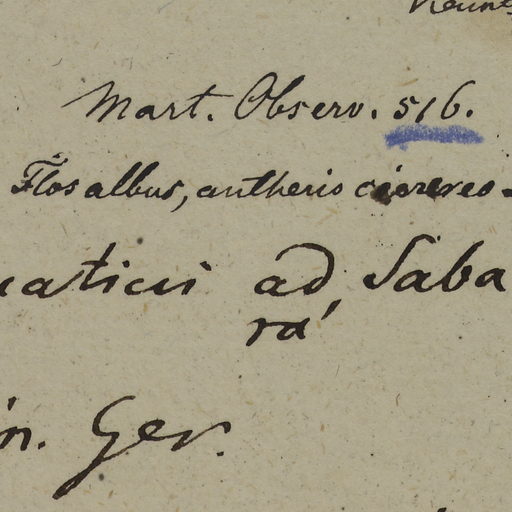 Mart. Observ. 516.
Flos albus, antheris cinereo-
uaticis ad Saba
rá
n. Ger.